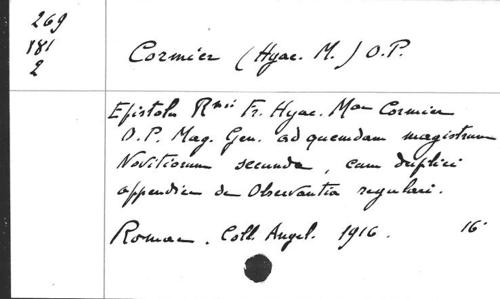 269
181
2
Cormier (Hyac. M.) O.P.
Epistola Rmi Fr. Hyac. Mae Cormier
O.P. Mag. Gen. ad quemdam magistrum
Novitiorum secunda, cum duplici
appendice de Observantia regulari.
Romae. Coll. Angel. 1916. 16°